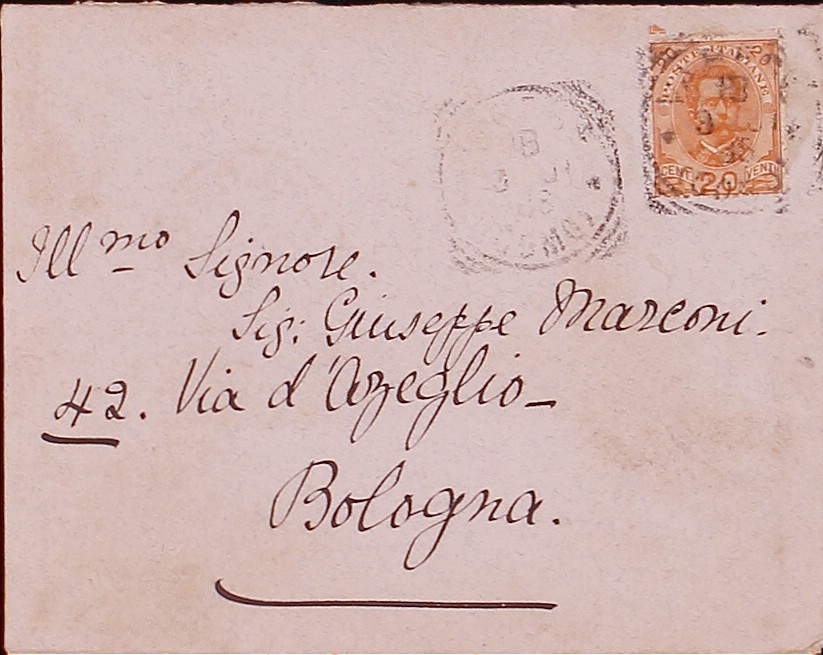 20 20
POSTE ITALIANE
CENT. 20 VENTI
Ill.mo Signore.
Sig: Giuseppe Marconi.
42. Via d'Azeglio_
Bologna.